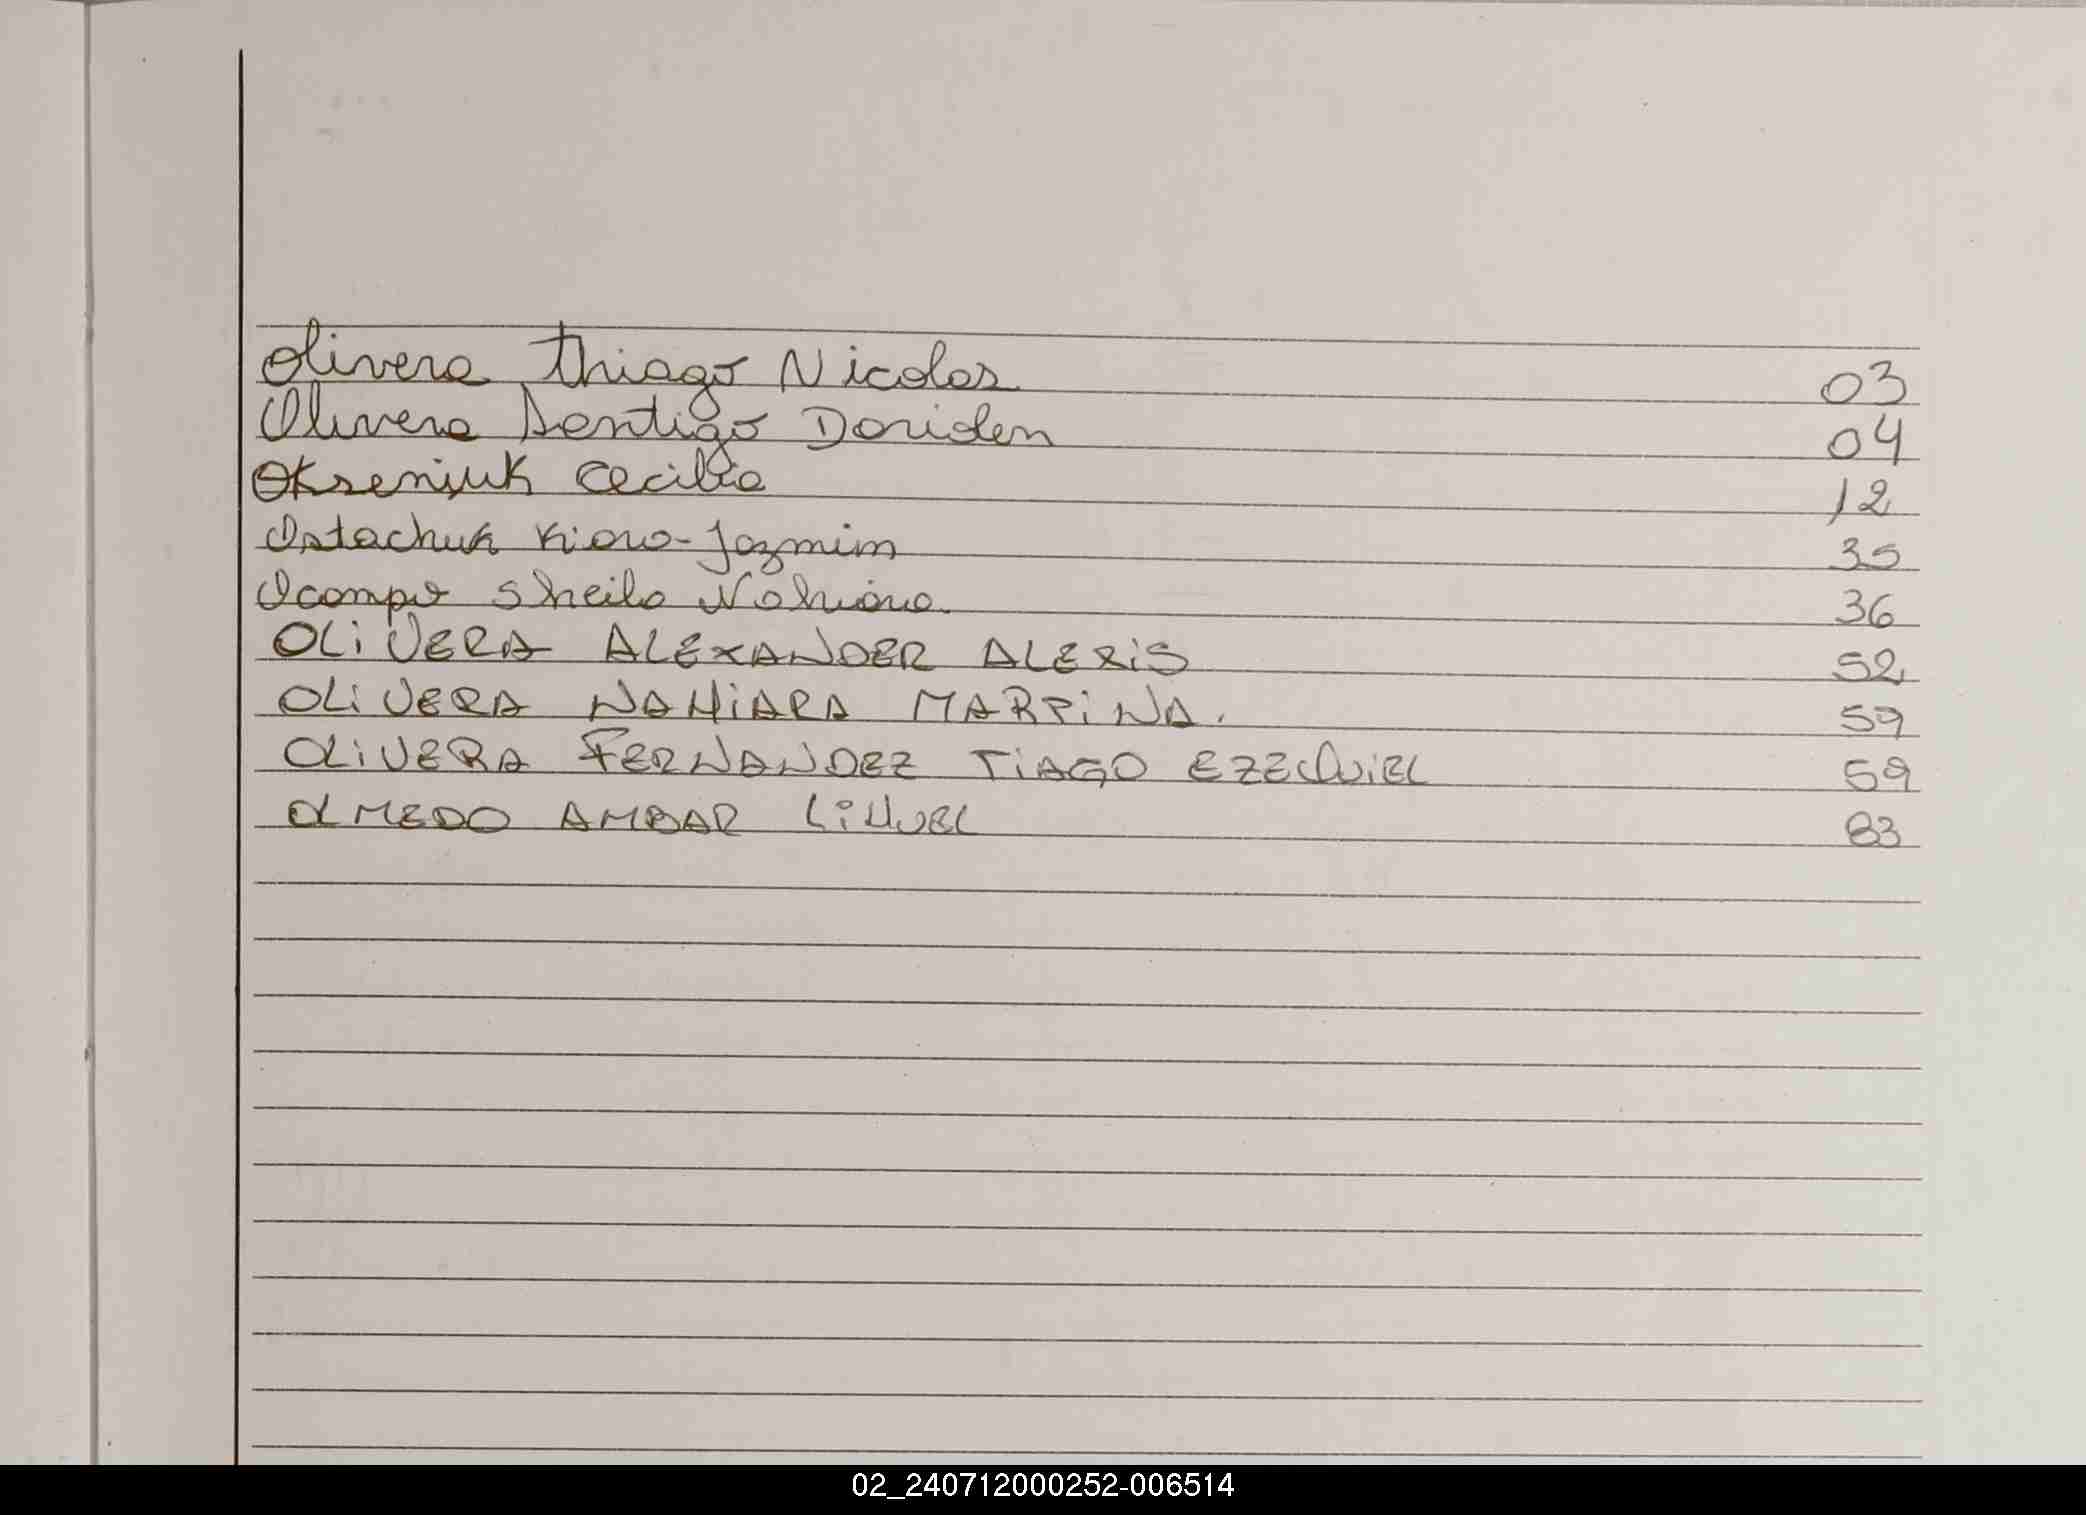 Olivera Thiago Nicolas 03
Olivera Santigo Doriden 04
Okseniuk Cecilia 12
Ostachuk Kiara Jazmin 35
Ocampo Sheila Nahiara 36
OLIVERA ALEXANDER ALEXIS 52
OLIVERA NAHIARA MARTINA. 59
OLIVERA FERNANDEZ TIAGO EZEQUIEL 59
OLMEDO AMBAR LIHUEL 83
02_240712000252-006514